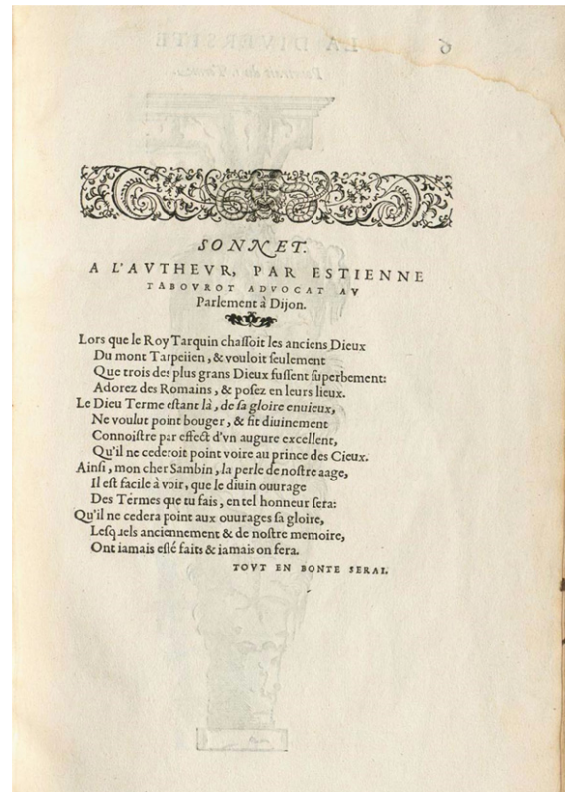 SONNET.
A L'AVTHEVR, PAR ESTIENNE
TABOVROT ADVOCAT AV
Parlement à Dijon.
Lors que le Roy Tarquin chaſſoit les anciens Dieux
Du mont Tarpeiien, & vouloit ſeulement
Que trois des plus grans Dieux fuſſent ſuperbement:
Adorez des Romains, & poſez en leurs lieux.
Le Dieu Terme eſtant là, de ſa gloire enuieux,
Ne voulut point bouger, & fit diuinement
Connoiſtre par effect d'vn augure excellent,
Qu'il ne cederoit point voire au prince des Cieux.
Ainſi, mon cher Sambin, la perle de noſtre aage,
Il eſt facile à voir, que le diuin ouurage
Des Termes que tu fais, en tel honneur ſera:
Qu'il ne cedera point aux ouurages ſa gloire,
Leſquels anciennement & de noſtre memoire,
Ont iamais eſté faits & iamais on fera.
TOVT EN BONTE SERAI.